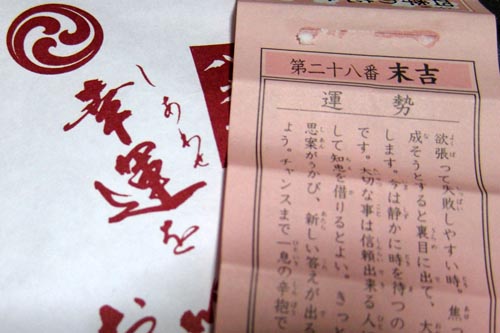 第二十八番 末吉
運勢
欲張って失敗しやすい時。焦
成そうとすると裏目に出て、大
します。今は静かに時を待つの
です。大切な事は信頼出来る人
して知恵を借りるとよい。きっ
思案がうかび、新しい答えが出る
よう。チャンスまで一息の辛抱で
しあわせ
幸運を